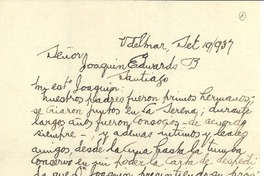 V del mar, Set 19/937
Señor
Joaquin Edwards B
Santiago
Mi est° Joaquin:
nuestros padres fueron primos hermanos;
se criaron juntos en la Serena, durante
largos años fueron consocios - de acuerdo
siempre - y ademas intimos y leales
amigos desde la cuna hasta la tumba
conservo en mi poder la carta de despedi
da que Dn Joaquin